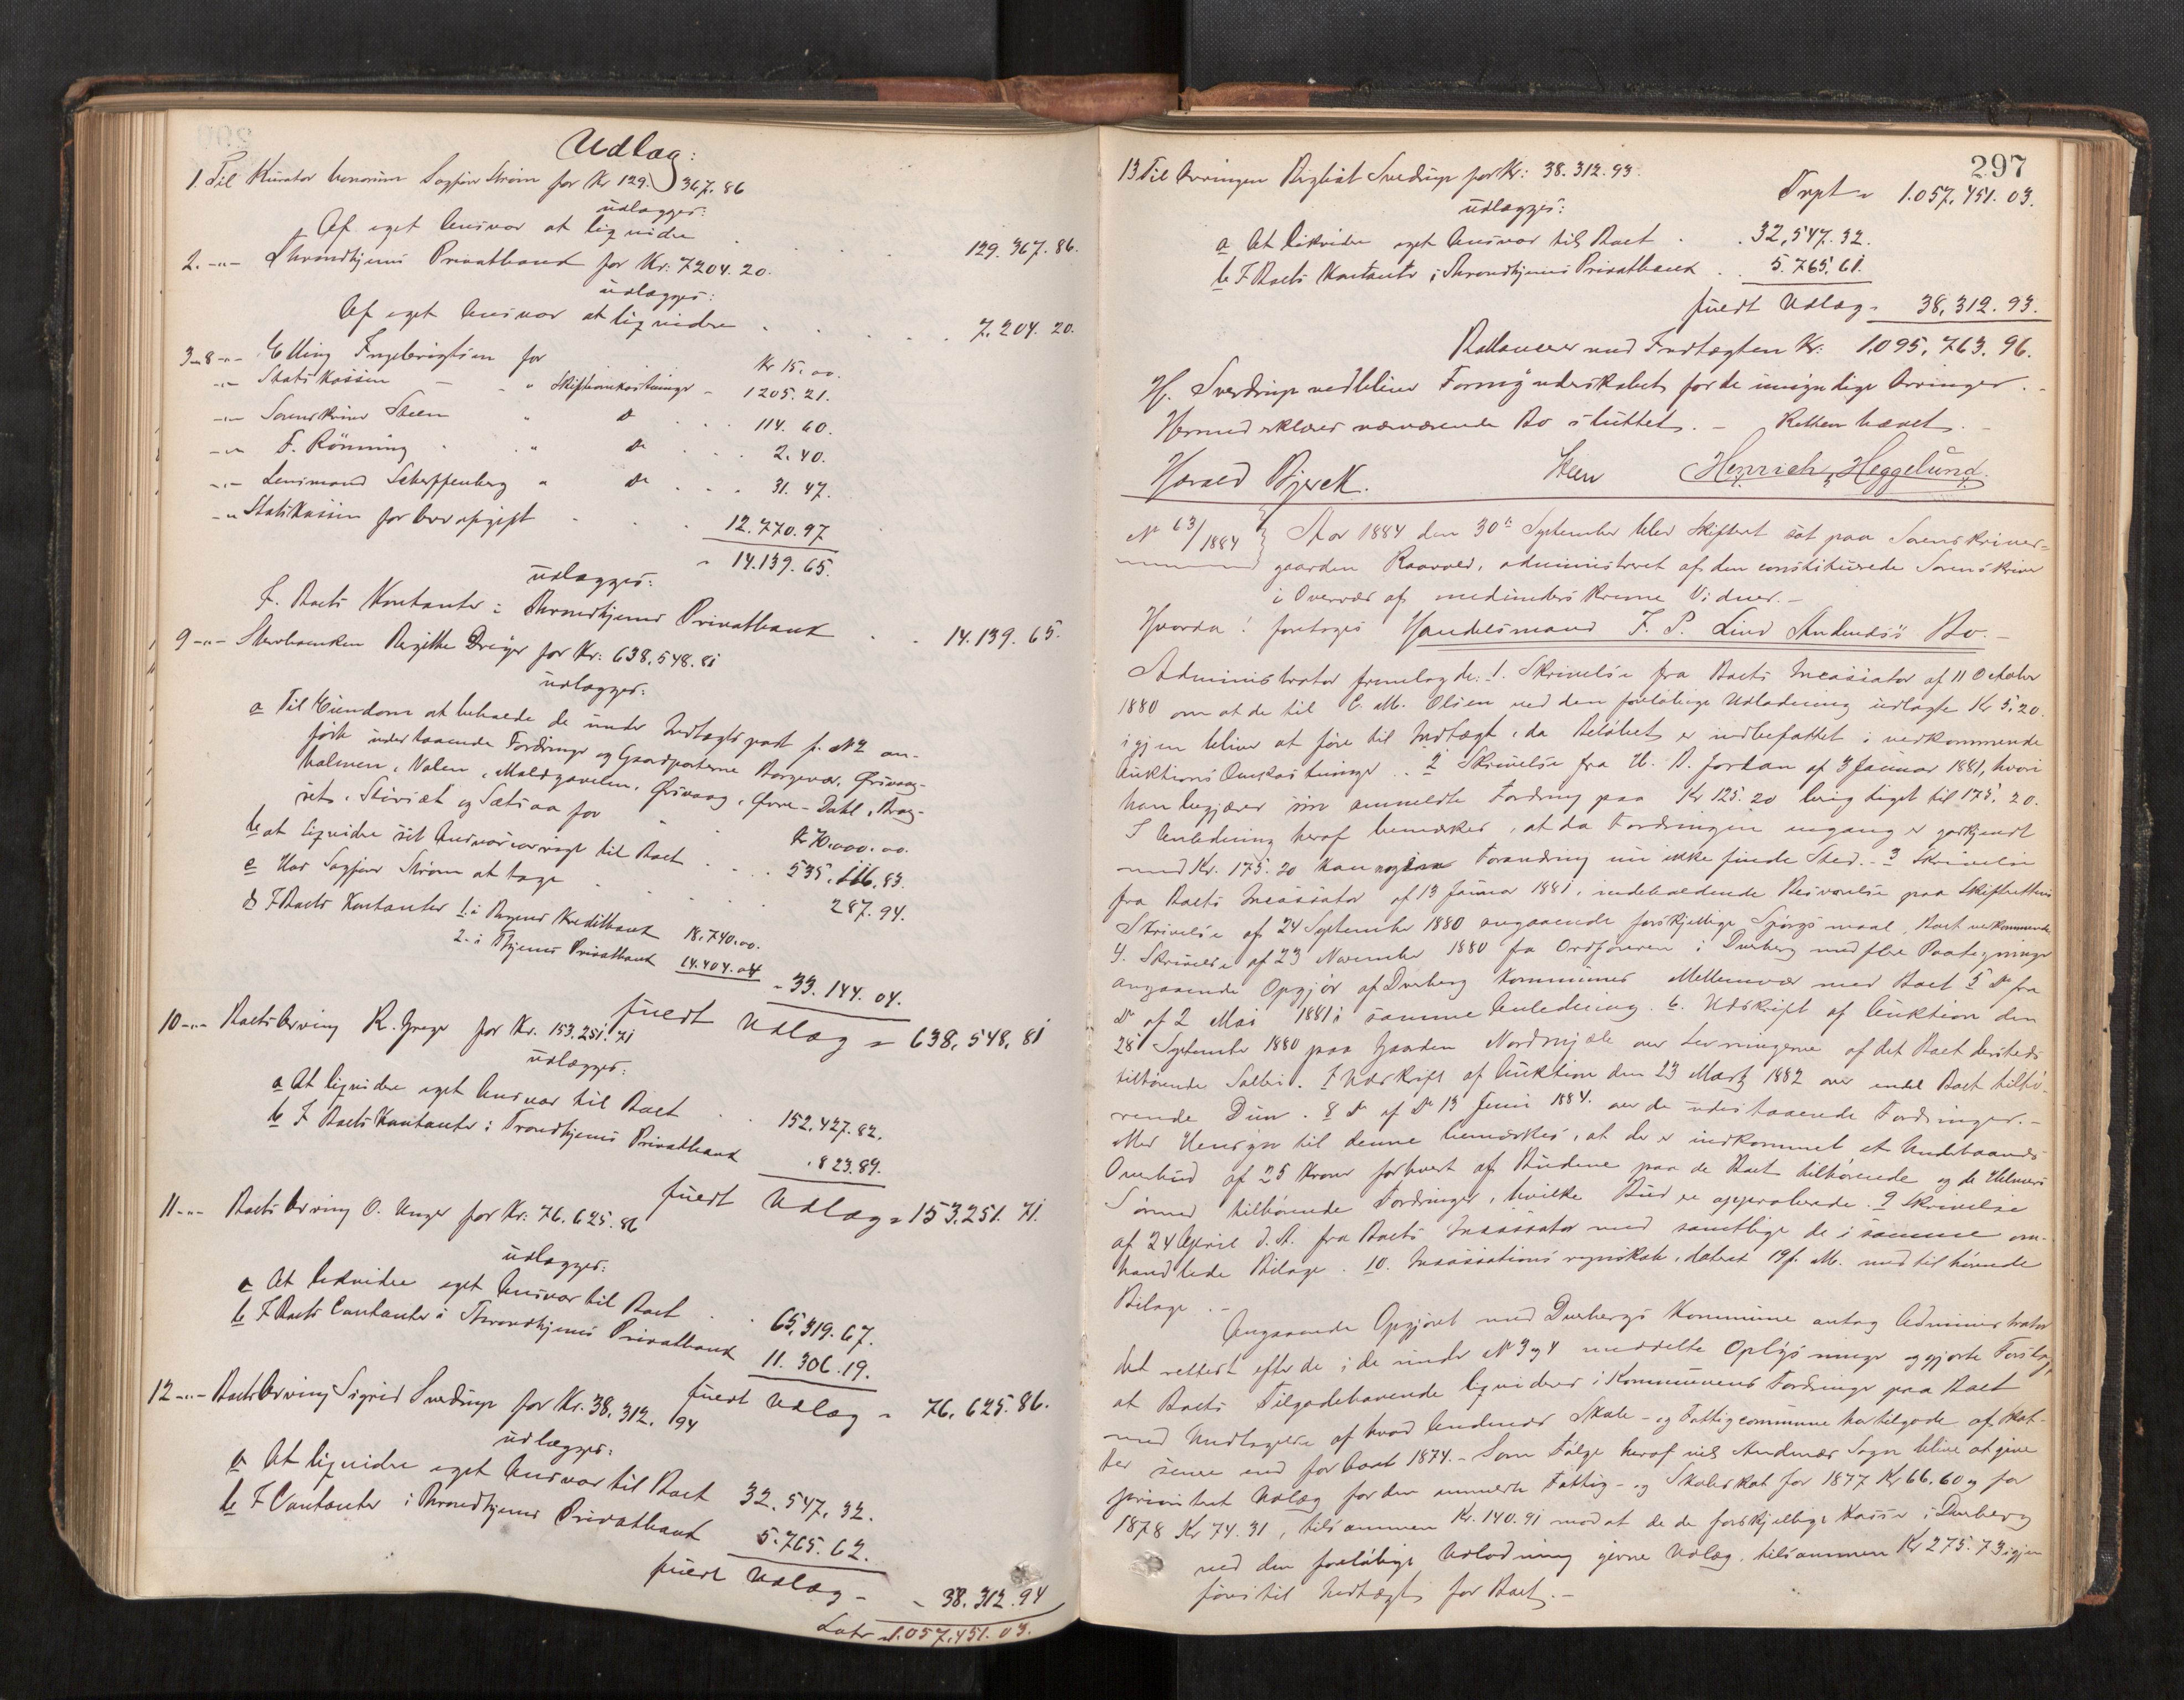 Udlæg:
1. Til Kurator honorum Sagfører Strøm for Kr 129.367.86
udlægges:
Af eget Ansvar at liqvidere 129.367.86.
2. -"- Throndhjems Privatbank for Kr: 7204.20.
udlægges:
Af eget Ansvar at liqvidere 7.204.20.
3-8 -"- Elling Ingebrigtsen for Kr 15.00.
-"- Statskassen - " Skifteomkostninger - 1205.21.
-"- Sorenskriver Steen " do 114.60.
-"- F. Rönning " do 2.40.
-"- Lensmand Scheffenberg " do 31.47.
-"- Statskassen for Arveafgift 12.770.97
" 14.139.65.
udlægges:
I Boets Kontanter i Throndhjems Privatbank 14.139.65.
9 -"- Sterboenken Birgitte Dreyer for Kr: 638.548.81
udlægges:
a Til Eiendom at beholde de under Indtægts post f. No 2 an-
førte udestaaende Fordringer og Gaardparterne Borgevær,
halmen, Valen, Maldgavelen, Örsvaag, Övre-Dahl,
og Sætraa for Kr 70.000.00.
b at liqvidere sit Ansvar til Boet 535.116.83.
c Hos Sagfører Strøm at tage 287.94.
d I Boets Kontanter 1. i Bergens Kreditbank 18.740.00.
2. i Thjems Privatbank 14.404.04
- 33.144.04.
fuldt Udlæg = 638.548.81
10 -"- Boets Arving R. Greger for Kr. 153.251.71
udlægges:
a At liqvidere eget Ansvar til Boet 152.427.82.
b I Boets Kontanter i Trondhjems Privatbank 823.89.
fuldt Udlæg = 153.251.71.
11 -"- Boets Arving O. Unger for Kr: 76.625.86
udlægges:
a At likvidere eget Ansvar til Boet 65.319.67.
b I Boets Contanter i Throndhjems Privatbank 11.306.19.
fuldt Udlæg = 76.625.86.
12 -"- Boets Arving Sigrid Sverdrup for Kr. 38.312.94
udlægges:
a At liqvidere eget Ansvar til Boet 32.547.32.
b I Contanter i Throndhjems Privatbank 5.765.62.
fuldt Udlæg - - 38.312.94
Latr 1.057.451.03.
297
13 Til Arvingen Sverdrup for Kr: 38.312.93.
Trpt = 1.057.451.03.
udlægges:
a At likvidere eget Ansvar til Boet 32,547.32.
b I Boets Kontanter i Throndhjems Privatbank 5.765.61.
fuldt Udlæg = 38,312.93.
Ballancerer med Indtægten Kr: 1.095,763.96.
H. Sverdrup vedbliver Formynderskabet for de umyndige Arvinger. -
Hermed erklæres nærværende Bo sluttet. - Retten hævet. -
Harald Bjerck. Steen Henrich Heggelund.
No 63/1884 } Aar 1884 den 30te September blev Skifteret sat paa Sorenskriver-
gaarden Raavold, administreret af den constituerede Sorenskriver
i Overvær af medunderskrevne Vidner. -
Hvorda! foretoges Handelsmand J. P. Lind Andenæs's Bo. -
Administrator fremlagde: 1. Skrivelse fra Boets Incassator af 11 October
1880 om at de til C. M. Olsen ved den foreløbige Udlodning udlagte Kr 5.20.
igjen bliver at føre til Indtægt, da Beløbet er indbefattet i vedkommende
Auktions Omkostninger. . 2 Skrivelse fra H. B. Jordan af 3 Januar 1881, hvori
han begjærer sin anmeldte Fordring paa Kr 125.20 berigtiget til 175.20.
I Anledning heraf bemærkes, at da Fordringen engang er godkjendt
med Kr. 175.20 kan nogen Forandring nu ikke finde Sted. - 3 Skrivelse
fra Boets Incassator af 13 Januar 1881, indeholdende Besvarelse paa Skifterettens
Skrivelse af 24 September 1880 angaaende forskjellige Spørgsmaal, Boet vedkommende
4. Skrivelse af 23 November 1880 fra Ordføreren i Dverberg med flere Paategninger
angaaende Opgjør af Dverberg Kommunes Mellemvær med Boet 5 do fra
do af 2 Mai 1881 i samme Anledning. 6. Udskrift af Auktion den
28 September 1880 paa Gaarden Nordmjæle over Levningerne af det Boet dersteds
tilhørende Saltri. 7 Udskrift af Auktion den 23 Marts 1882 over endel Boet tilhø-
rende Dun. 8 do af do 13 Juni 1884. over de udestaaende Fordringer. -
Med Hensyn til denne bemærkes, at der er indkommet et Underhaands
Overbud af 25 Kroner for hvert af Budene paa de Boet tilhørende og de
tilhørende Fordringer, hvilke Bud er approberede. 9 Skrivelse
af 24 April d. A. fra Boets Incassator med samtlige de i samme om-
handlede Bilage. 10. Incassations regnskab, dateret 19 f. M. med tilhørende
Bilage. -
Angaaende Opgjøret med Dverbergs Kommune antog Administrator
det rettest efter de i de under No 3 og 4 meddelte Oplysninger og gjorte Forslag,
at Boets Tilgodehavende liqvideres i Kommunens Fordringer paa Boet
med Undtagelse af hvad Andenæs Skole- og Fattigcommune har tilgode af Skat-
ter senere end for Aaret 1874. - Som Følge heraf vil Andenæs Sogn blive at give
prioriteret Udlæg for den anmeldte Fattig- og Skoleskat for 1877 Kr 66.60 og for
1878 Kr 74.31, tilsammen Kr. 140.91 mod at de de forskjellige Kasser i Dverberg
ved den foreløbige Udlodning givne Udlæg, tilsammen Kr 275.73 igjen
føres til Indtægt for Boet. -